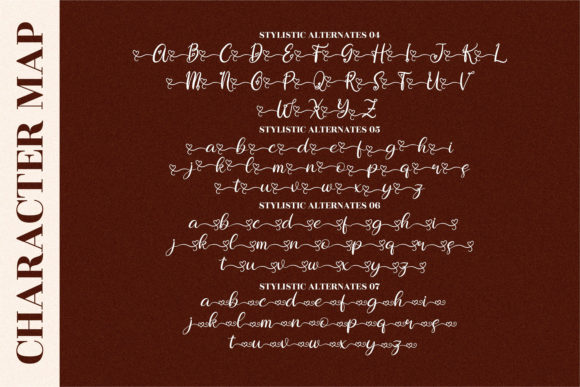 CHARACTER MAP
STYLISTIC ALTERNATES 04
A B C D E F G H I J K L
M N O P Q R S T U V
W X Y Z
STYLISTIC ALTERNATES 05
a b c d e f g h i
j k l m n o p q r s
t u v w x y z
STYLISTIC ALTERNATES 06
a b c d e f g h i
j k l m n o p q r s
t u v w x y z
STYLISTIC ALTERNATES 07
a b c d e f g h i
j k l m n o p q r s
t u v w x y z